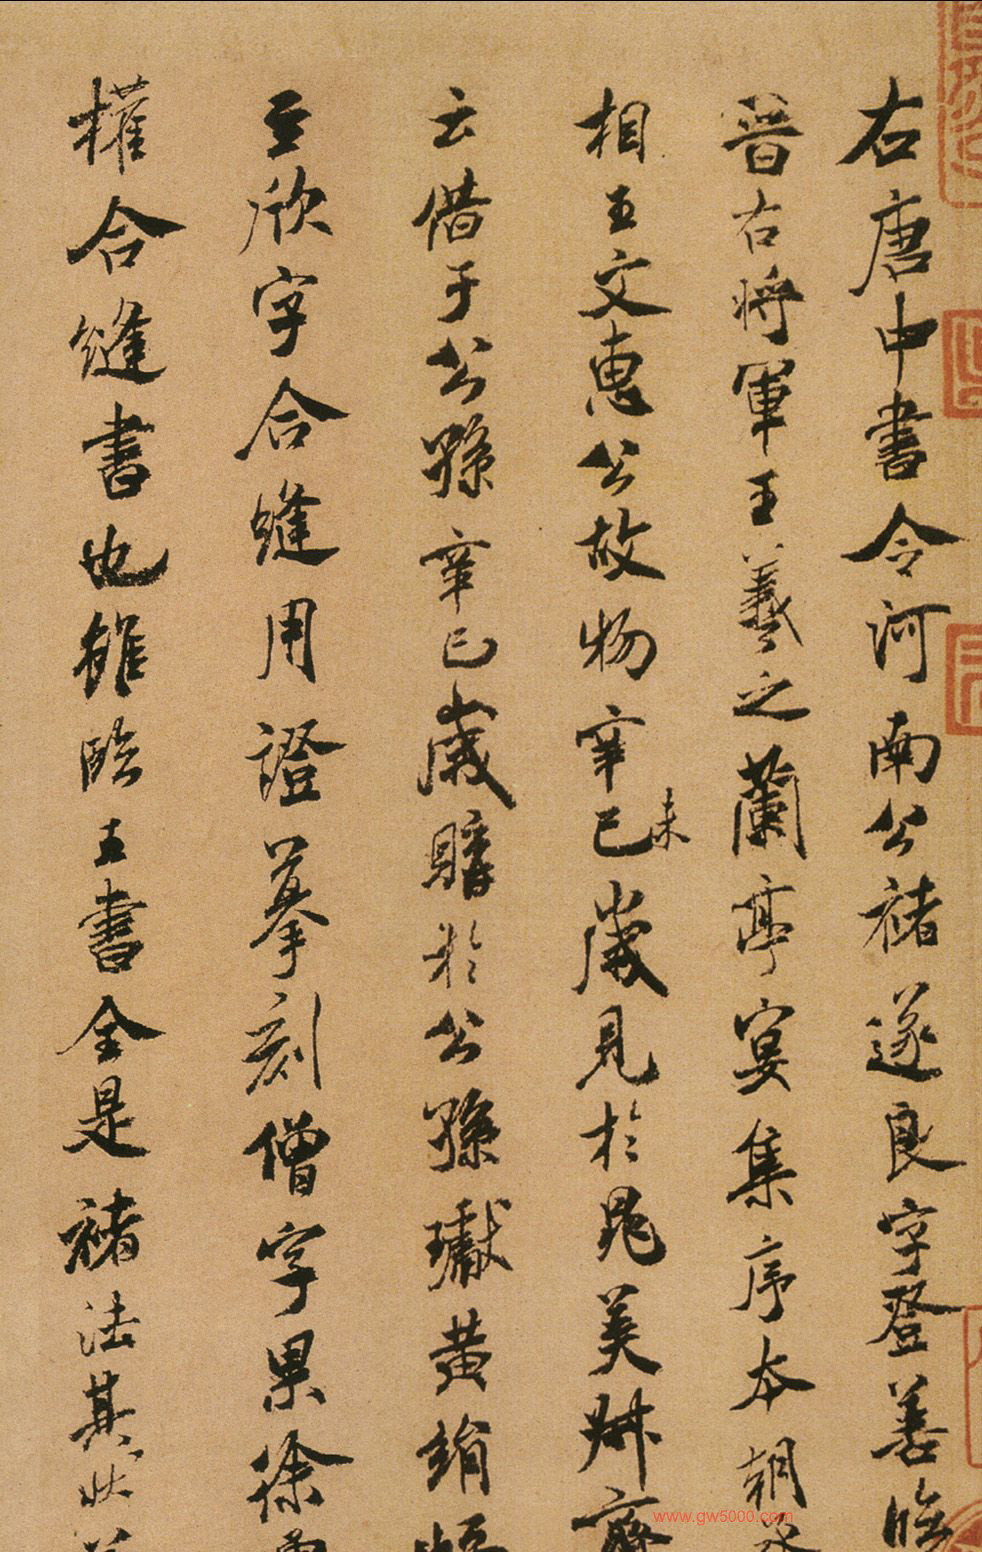 右唐中書令河南公褚遂良字登善臨
晉右將軍王羲之蘭亭宴集序本朝丞
相王文惠公故物辛巳未歲見於晁美叔齋
云借于公孫辛巳歲購於公孫瓛黃絹幅
至欣字合縫用證摹刻僧字果徐僧
權合縫書也雖臨王書全是褚法其狀若
www.gw5000.com